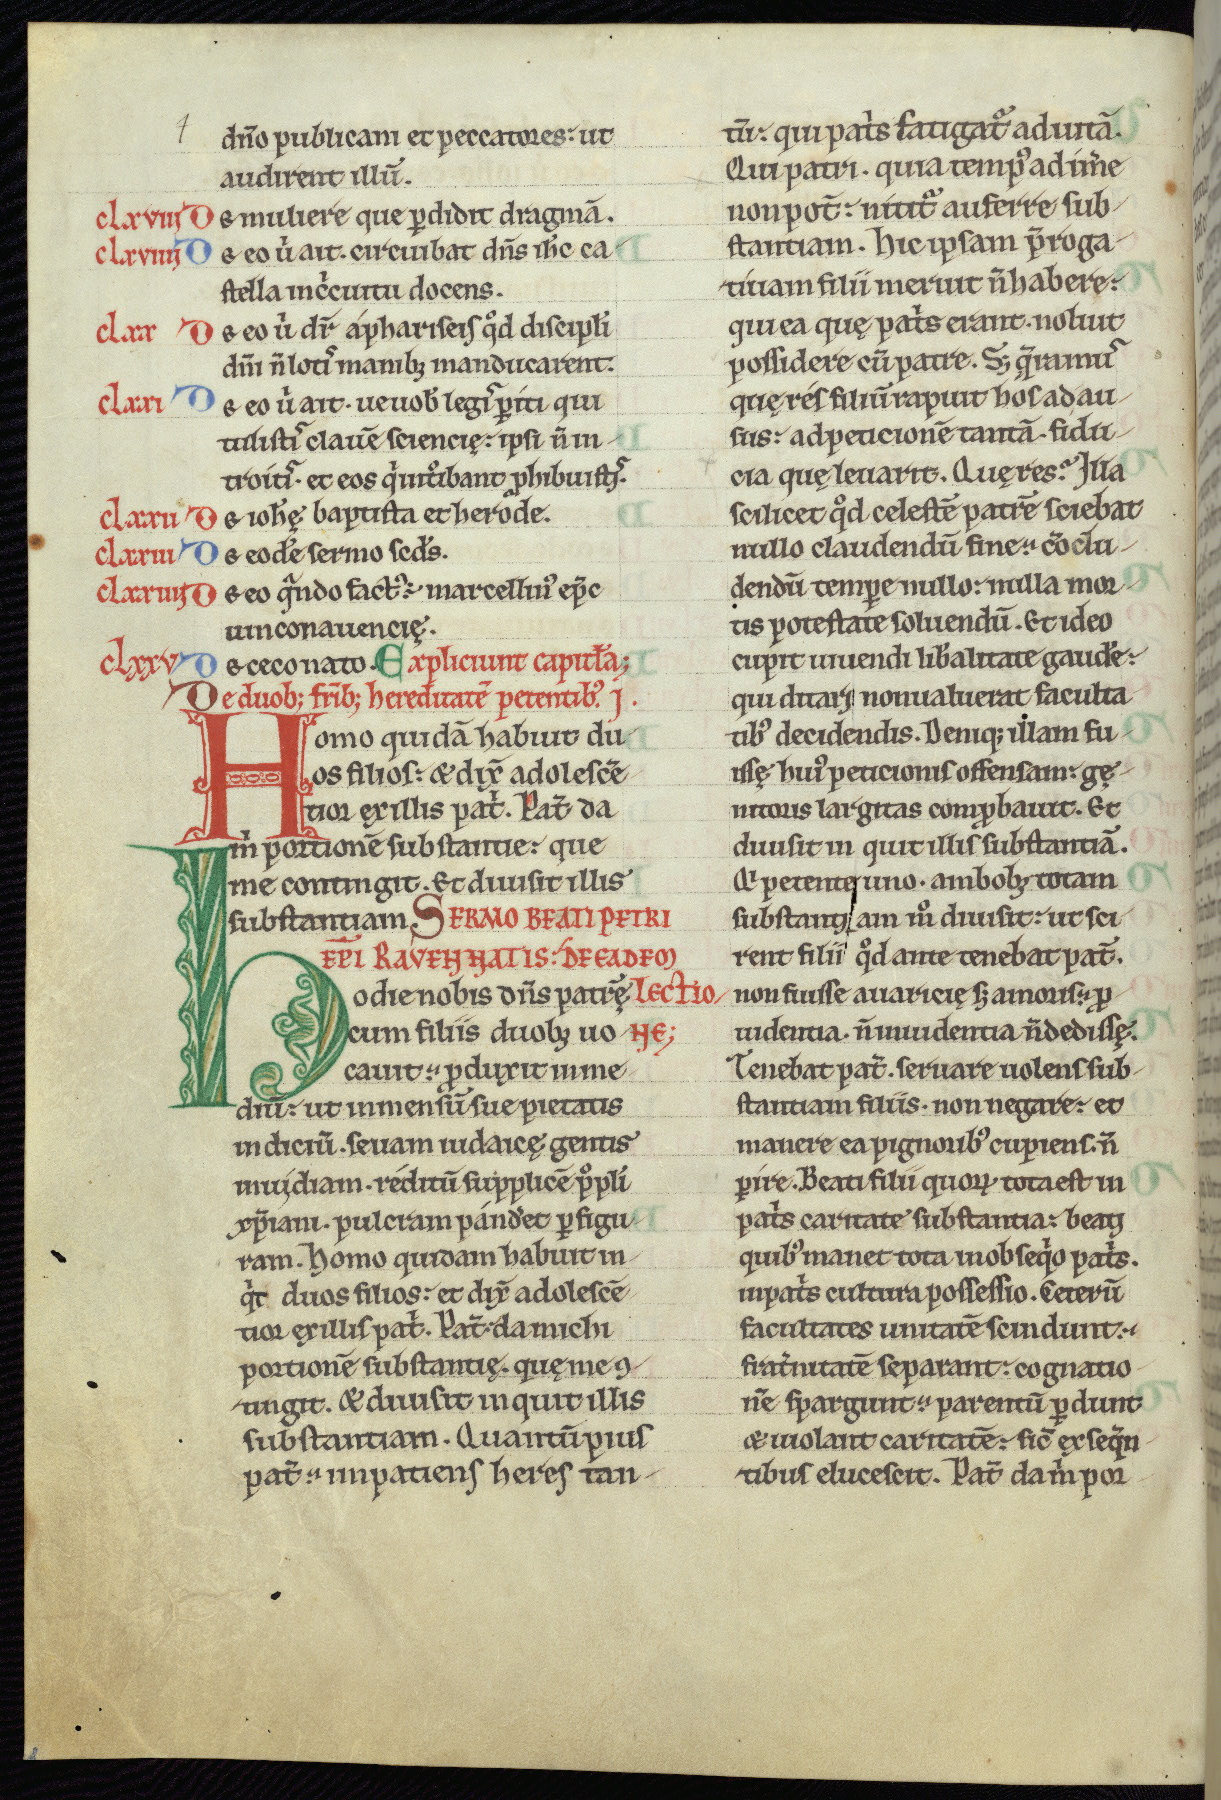 dn̄o publicani et peccatores: ut
audirent illū.
clxviij De muliere que ꝑdidit dragmā.
clxviiij De eo u̍ ait. circuibat dn̄s ih̄c ca
stella in c̍cuitu docens.
clxx De eo u̍ dr̄ a phariseis qd̄ discipl̍i
dn̄i n̄ lotis manibꝫ manducarent.
clxxi De eo u̍ ait. ue uob̄ legisꝑiti qui
tulistis clauē sciencię: ipsi n̄ in
troitis. et eos q̍ introibant ꝓhibuistis.
clxxii De ioh̄ę baptista et herode.
clxxiii De eodē sermo scd̄s.
clxxiiij De eo qn̄do fact᷒: marcellin᷒ ep̄c
uinconauencię.
clxxv De ceco nato. Expliciunt capitl̄a;
De duob; fr̄ib; hereditatē petentib᷒. j.
Homo quidā habuit du
os filios: & dix̄ adolescē
tior ex illis pat̄. Pat̄ da
m̍ portionē substantie: que
me contingit. Et diuisit illis
substantiam. SERMO BEATI PETRI
EP̄I RAVENNATIS: DE EADEM
Hodie nobis dn̄s patrē Lectio
cum filiis duobꝫ uo NE;
cauit: ꝓduxit in me
diū: ut inmensū sue pietatis
indiciū. seuam iudaicę gentis
inuidiam. reditū supplicē pp̄li
xp̄iani. pulcram panderet ꝑ figu
ram. Homo quidam habuit in
q̍t duos filios: et dix̄ adolescē
tior ex illis pat̄. Pat̄ da michi
portionē substantię. quę me ꝯ
tingit. & diuisit inquit illis
substantiam. Quantū pius
pat̄: inpatiens heres tan
tū: qui pat̍s fatigat᷒ ad uitā.
Qui patri. quia temp᷒ adim̄e
non pot̄: nitit᷒ auferre sub
stantiam. Hic ipsam p̄roga
tiuam filii meruit n̄ habere:
qui ea quę pat̍s erant. noluit
possidere cū patre. Sꝫ q̄ramus
quę res filiū rapuit hos ad au
sus: ad peticionē tantā. fidu
cia quę leuarit. Quę res? Illa
scilicet qd̄ celestē patrē sciebat
nullo claudendū fine: c̄oclu
dendū tempe nullo: nulla mor
tis potestate soluendū. Et ideo
cupit uiuendi lib̄alitate gaudē:
qui ditari non ualuerat faculta
tib᷒ decidendis. Deniq; illam fu
issę hui᷒ peticionis offensam: gę
nitoris largitas comꝓbauit. Et
diuisit inquit illis substantiā.
At petente uno. ambobꝫ totam
substantiam m̊ diuisit: ut sci
rent filii qd̄ ante tenebat pat̄.
non fuisse auaricię sꝫ amoris: ꝓ
uidentia. n̄ inuidentia n̄ dedissę.
Tenebat pat̄. seruare uolens sub
stantiam filiis. non negare: et
manere ea pignorib᷒ cupiens. n̄
ꝑire. Beati filii quoꝝ tota est in
pat̍s caritate substantia: beati
quib᷒ manet tota in obseq̍o pat̍s.
in pat̍s cultura possessio. Ceterū
facultates unitatē scindunt:
frat̄nitatē separant: cognatio
nē spargunt: parentū ꝑdunt
& uiolant caritatē: sic̄ ex seq̄n
tibus elucescit. Pat̄ da m̍ por